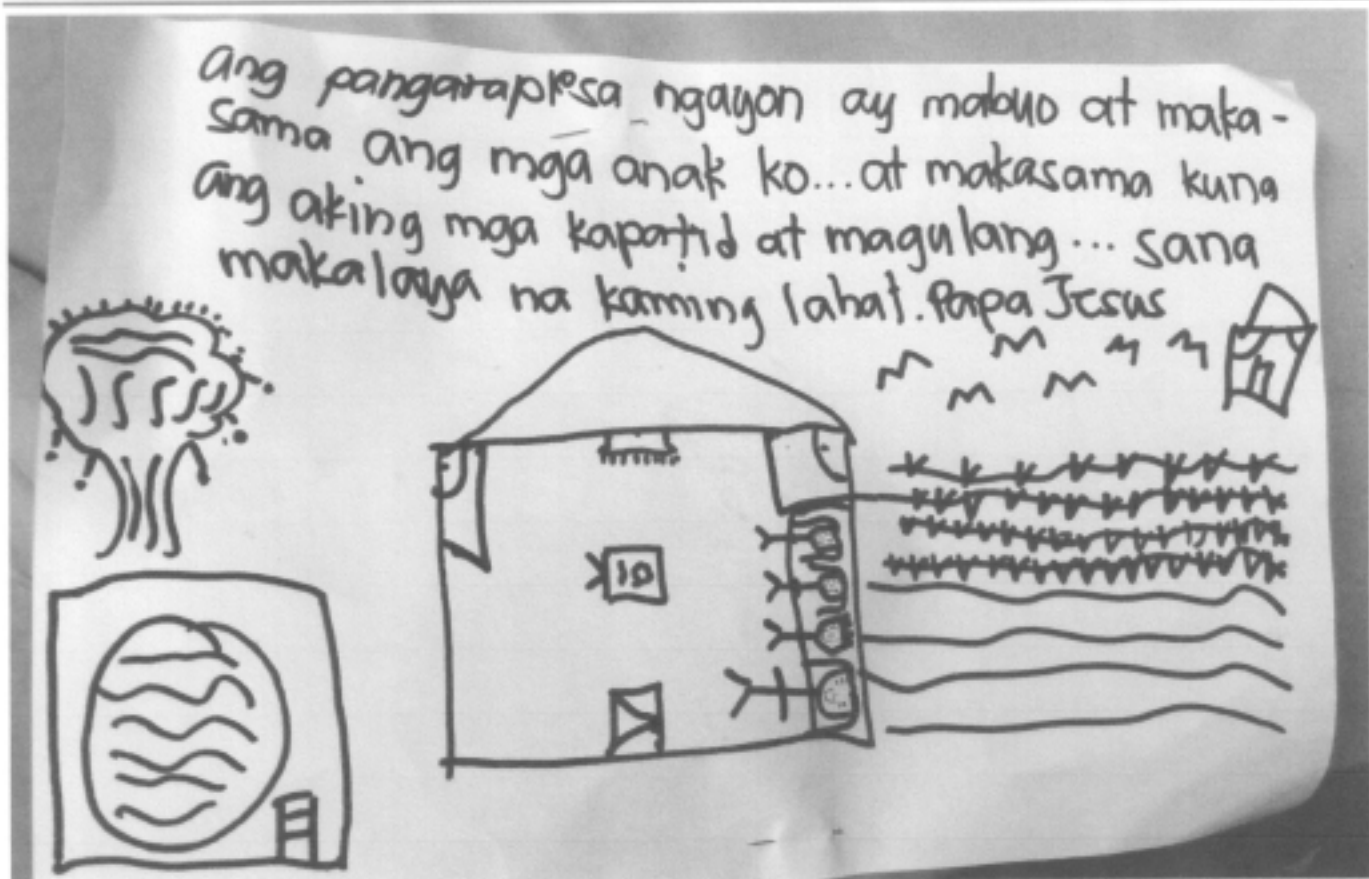 ang pangarapkosa ngayon ay mabuo at maka-
sama ang mga anak ko... at makasama kuna
ang aking mga kapatid at magulang... sana
makalaya na kaming lahat. Papa Jesus
10